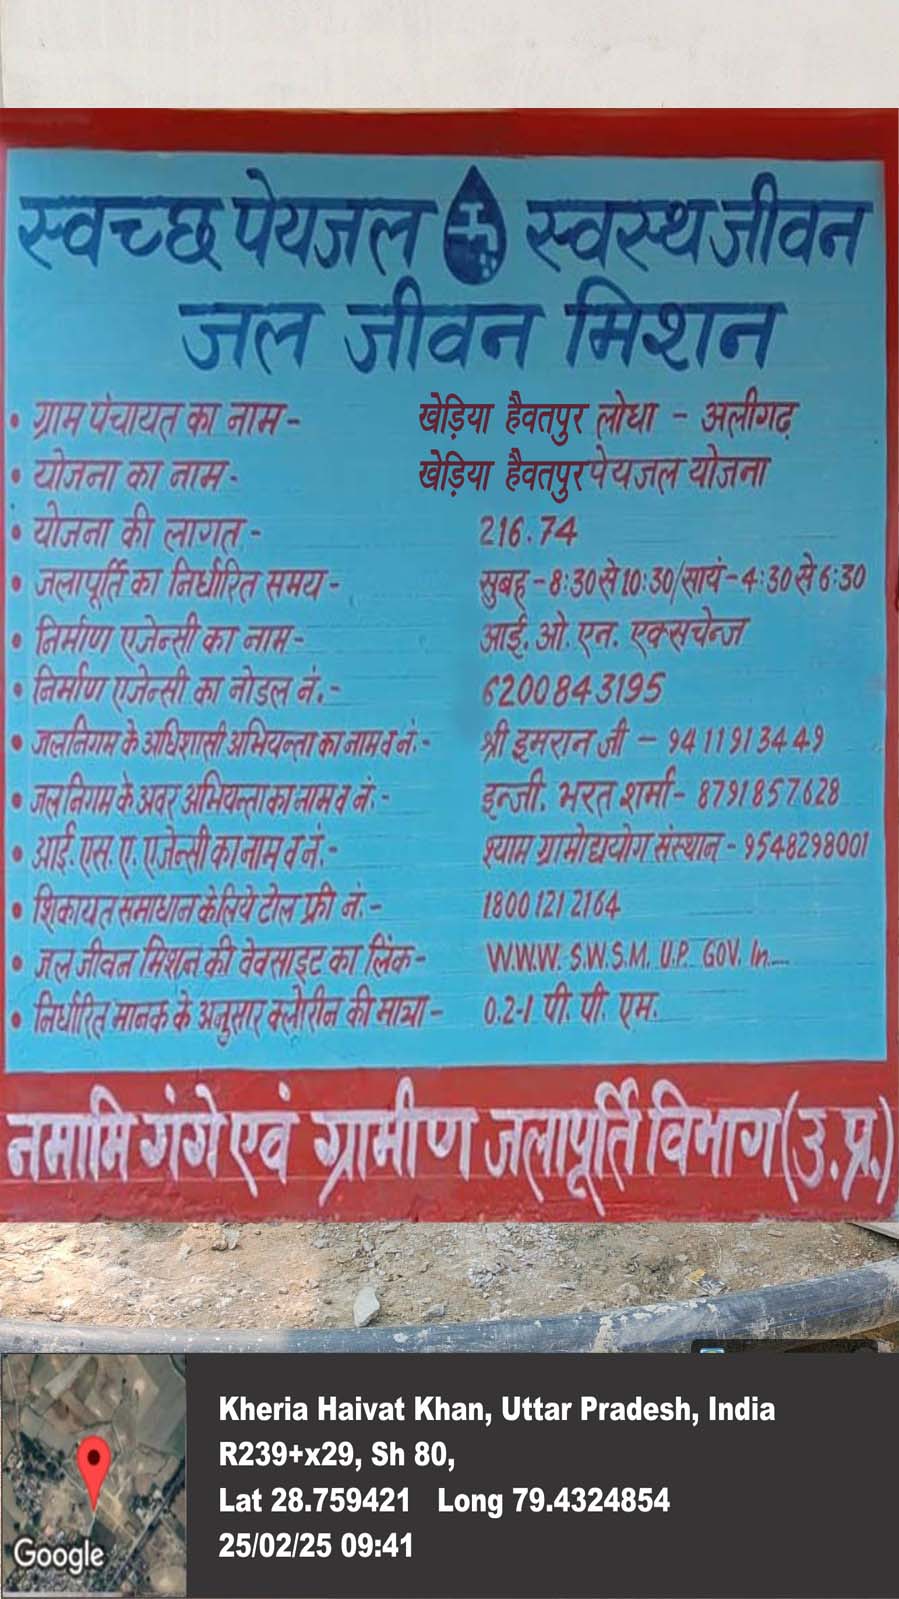 स्वच्छ पेयजल स्वस्थ जीवन
जल जीवन मिशन
• ग्राम पंचायत का नाम - खेड़िया हैवतपुर लोधा - अलीगढ़
• योजना का नाम - खेड़िया हैवतपुर पेयजल योजना
• योजना की लागत - 216.74
• जलापूर्ति का निर्धारित समय - सुबह - 8:30 से 10:30/सायं - 4:30 से 6:30
• निर्माण एजेन्सी का नाम - आई. ओ. एन. एक्सचेन्ज
• निर्माण एजेन्सी का नोडल नं. - 6200843195
• जलनिगम के अधिशासी अभियन्ता का नाम व नं. - श्री इमरान जी - 9411913449
• जलनिगम के अवर अभियन्ता का नाम व नं. - इन्जी. भरत शर्मा - 8791857628
• आई. एस. ए. एजेन्सी का नाम व नं. - श्याम ग्रामोद्ययोग संस्थान - 9548298001
• शिकायत समाधान के लिये टोल फ्री नं. - 18001212164
• जल जीवन मिशन की वेवसाइट का लिंक - W.W.W. S.W.S.M. U.P. GOV. In....
• निर्धारित मानक के अनुसार क्लोरीन की मात्रा - 0.2-1 पी. पी. एम.
नमामि गंगे एवं ग्रामीण जलापूर्ति विभाग (उ.प्र.)
Kheria Haivat Khan, Uttar Pradesh, India
R239+x29, Sh 80,
Lat 28.759421 Long 79.4324854
25/02/25 09:41
Google